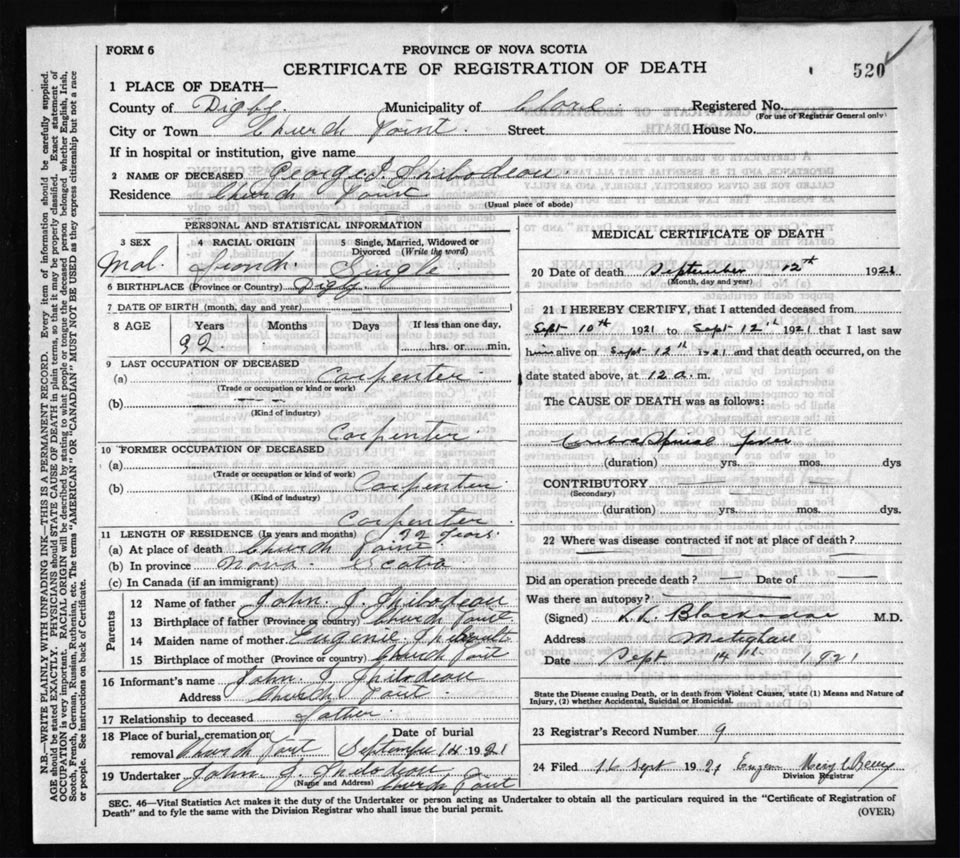 FORM 6
PROVINCE OF NOVA SCOTIA
CERTIFICATE OF REGISTRATION OF DEATH
520
1 PLACE OF DEATH—
County of Digby. Municipality of Clare. Registered No.
(For use of Registrar General only)
City or Town Church Point. Street House No.
If in hospital or institution, give name
2 NAME OF DECEASED George J. Thibodeau.
Residence Church Point
(Usual place of abode)
PERSONAL AND STATISTICAL INFORMATION
3 SEX 4 RACIAL ORIGIN 5 Single, Married, Widowed or Divorced (Write the word)
Mal. French. Single
6 BIRTHPLACE (Province or Country) Digby
7 DATE OF BIRTH (month, day and year)
8 AGE Years Months Days If less than one day,
hrs. or min.
9 LAST OCCUPATION OF DECEASED
(a) Carpenter.
(Trade or occupation or kind or work)
(b)
(Kind of industry)
Carpenter
10 FORMER OCCUPATION OF DECEASED
(a)
(Trade or occupation or kind of work)
(b) Carpenter.
(Kind of industry)
Carpenter.
11 LENGTH OF RESIDENCE (In years and months) Years.
(a) At place of death Church Point
(b) In province Nova Scotia
(c) In Canada (if an immigrant)
Parents
12 Name of father John. J. Thibodeau
13 Birthplace of father (Province or country) Church Point
14 Maiden name of mother Eugenie
15 Birthplace of mother (Province or country) Church Point
16 Informant's name John. J. Thibodeau
Address Church Point
17 Relationship to deceased father.
18 Place of burial, cremation or removal Church Point Date of burial September 14 1921
19 Undertaker John. J. Thibodeau
(Name and Address) Church Point
MEDICAL CERTIFICATE OF DEATH
20 Date of death September 12th 1921
(Month, day and year)
21 I HEREBY CERTIFY, that I attended deceased from
Sept 10th 1921 to Sept 12th 1921 that I last saw
him alive on Sept 12th 1921 and that death occurred, on the
date stated above, at 12 a. m.
The CAUSE OF DEATH was as follows:
Cerebro Spinal fever
(duration) yrs. mos. dys
CONTRIBUTORY
(Secondary)
(duration) yrs. mos. dys.
22 Where was disease contracted if not at place of death?
Did an operation precede death? — Date of —
Was there an autopsy?
(Signed) M.D.
Address Meteghan
Date Sept 14th 1921
State the Disease causing Death, or in death from Violent Causes, state (1) Means and Nature of
Injury, (2) whether Accidental, Suicidal or Homicidal.
23 Registrar's Record Number 9
24 Filed 16 Sept 1921
Division Registrar
SEC. 46—Vital Statistics Act makes it the duty of the Undertaker or person acting as Undertaker to obtain all the particulars required in the "Certificate of Registration of
Death" and to fyle the same with the Division Registrar who shall issue the burial permit.
(OVER)
N.B.—WRITE PLAINLY WITH UNFADING INK—THIS IS A PERMANENT RECORD. Every item of information should be carefully supplied.
AGE should be stated EXACTLY. PHYSICIANS should STATE CAUSE OF DEATH in plain terms, so that it may be properly classified. Exact statement of
OCCUPATION is very important. RACIAL ORIGIN will be described by stating to what people or tongue the deceased person belonged whether English, Irish,
Scotch, French, German, Russian, Ruthenian, etc. The terms "AMERICAN" OR "CANADIAN" MUST NOT BE USED as they express citizenship but not a race
or people. See instructions on back of Certificate.